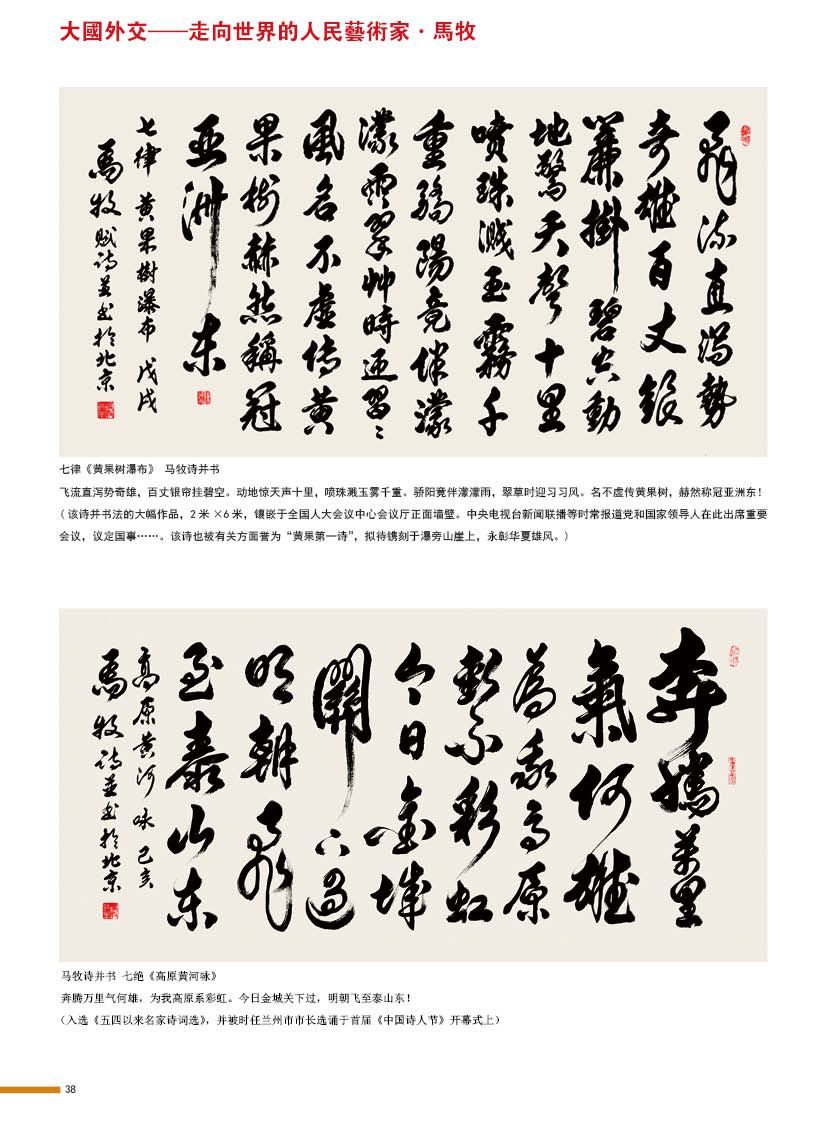 大國外交——走向世界的人民藝術家·馬牧
飛流直瀉勢
奇雄百丈銀
簾掛碧空動
地驚天聲十里
噴珠濺玉霧千
重驕陽竟伴濛
濛雨翠艸時迎習習
風名不虛傳黄
果樹赫然稱冠
亚洲东
七律 黄果樹瀑布 戊戌
馬牧赋诗並书於北京
七律《黄果树瀑布》 马牧诗并书
飞流直泻势奇雄，百丈银帘挂碧空。动地惊天声十里，喷珠溅玉雾千重。骄阳竟伴濛濛雨，翠草时迎习习风。名不虚传黄果树，赫然称冠亚洲东！
（该诗并书法的大幅作品，2 米 ×6 米，镶嵌于全国人大会议中心会议厅正面墙壁。中央电视台新闻联播等时常报道党和国家领导人在此出席重要
会议，议定国事……。该诗也被有关方面誉为“黄果第一诗”，拟待镌刻于瀑旁山崖上，永彰华夏雄风。）
奔騰萬里
氣何雄
為我高原
繫彩虹
今日金城
關下過
明朝飛
至泰山东
高原黄河咏 己亥
馬牧诗並书於北京
马牧诗并书 七绝《高原黄河咏》
奔腾万里气何雄，为我高原系彩虹。今日金城关下过，明朝飞至泰山东！
（入选《五四以来名家诗词选》，并被时任兰州市市长选诵于首届《中国诗人节》开幕式上）
38